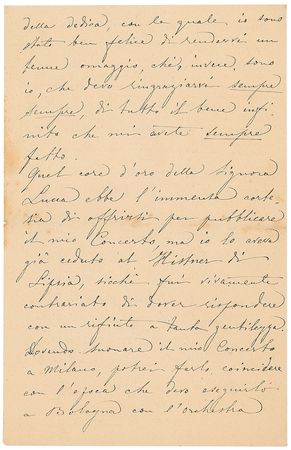 della dedica, con la quale io sono
stato ben felice di rendervi un
tenue omaggio, chè, invece, sono
io, che devo ringraziarvi sempre
sempre, di tutto il bene infi-
nito che mi avete sempre
fatto.
Quel core d'oro della Signora
Lucca ebbe l'immensa corte
sia di offrirsi per pubblicare
il mio Concerto, ma io lo aveva
già ceduto al Kistner di
Lipsia, sicchè fui vivamente
contrariato di dover rispondere
con un rifiuto a tanta gentilezza.
Dovendo suonare il mio Concerto
a Milano, potrei farlo coincidere
con l'epoca che devo eseguirlo
a Bologna con l'orchestra